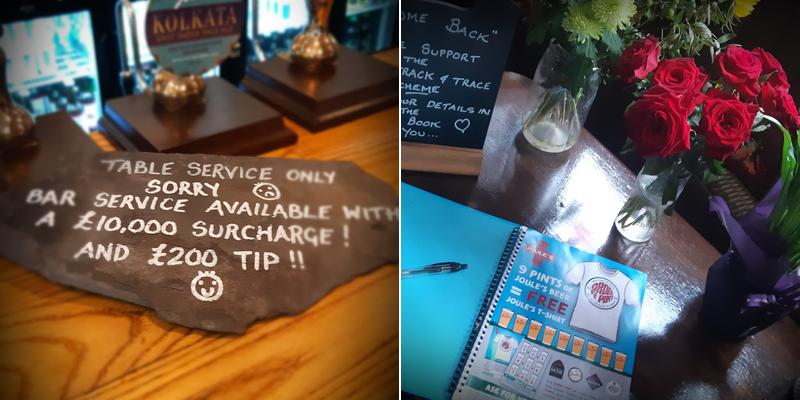 KOLKATA
TABLE SERVICE ONLY
SORRY
BAR SERVICE AVAILABLE WITH
A £10,000 SURCHARGE!
AND £200 TIP!!
OME BACK"
E SUPPORT
THE
TRACK & TRACE
CHEME
OUR DETAILS IN
THE
BOOK
YOU...
JOULE'S
9 PINTS OF
JOULE'S BEER
= FREE
JOULE'S T-SHIRT
ASK FOR